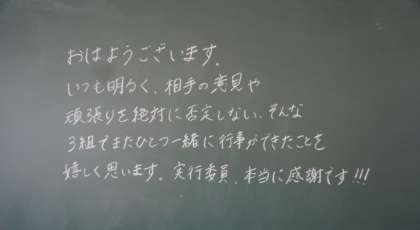 おはようございます。
いつも明るく、相手の意見や
頑張りを絶対に否定しない、そんな
3組でまたひとつ一緒に行事ができたことを
嬉しく思います。実行委員、本当に感謝です!!!